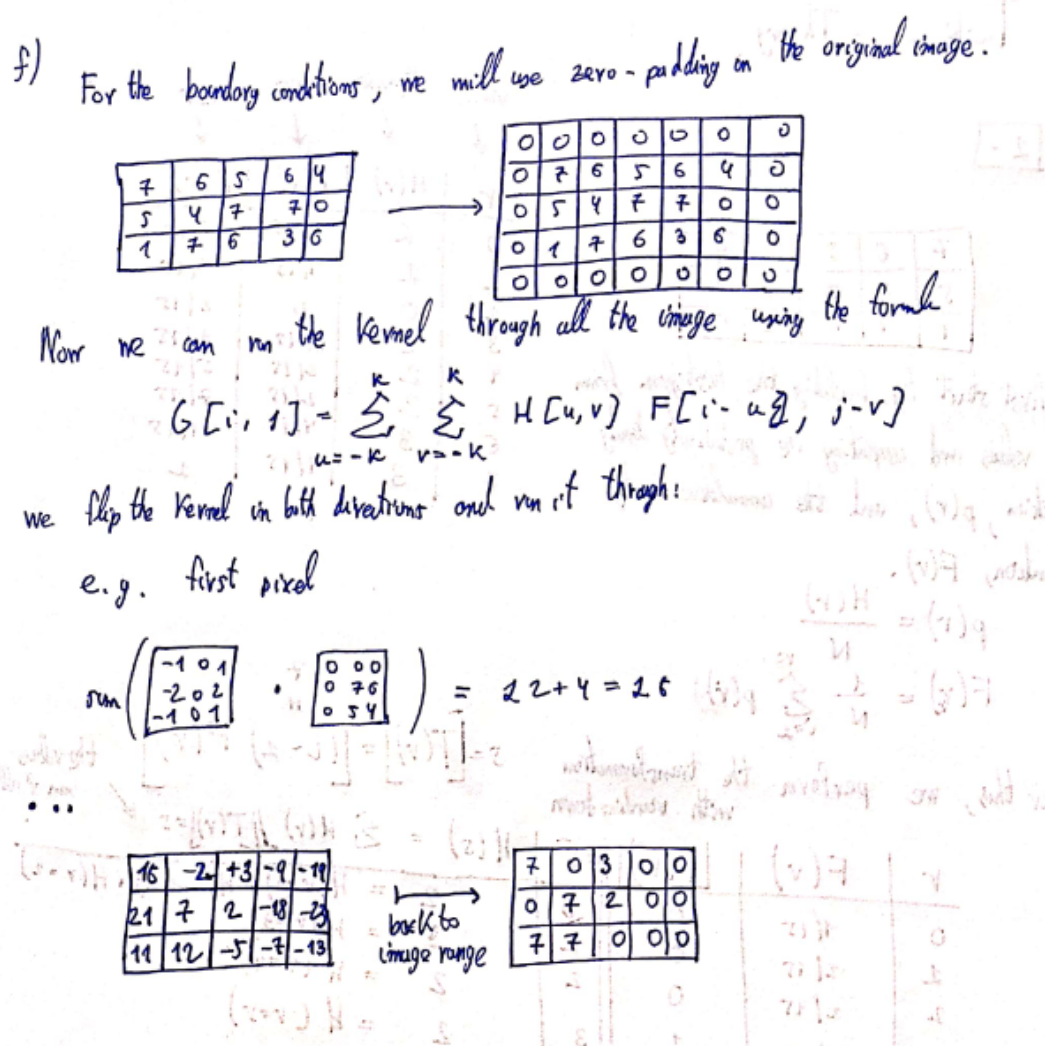 f) For the boundary conditions, we will use zero-padding on the original image.
7 6 5 6 4
5 4 7 7 0
1 7 6 3 6
0 0 0 0 0 0 0
0 7 6 5 6 4 0
0 5 4 7 7 0 0
0 1 7 6 3 6 0
0 0 0 0 0 0 0
Now we can run the kernel through all the image using the formula
G[i, 1] = Σ Σ H[u,v] F[i-u, j-v]
K K
u=-K v=-K
we flip the kernel in both directions and run it through:
e.g. first pixel
sum ( -1 0 1 · 0 0 0 ) = 12+4 = 16
-2 0 2 0 7 6
-1 0 1 0 5 4
...
16 -2 +3 -9 -19
21 7 2 -18 -23
11 12 -5 -7 -13
back to
image range
7 0 3 0 0
0 7 2 0 0
7 7 0 0 0